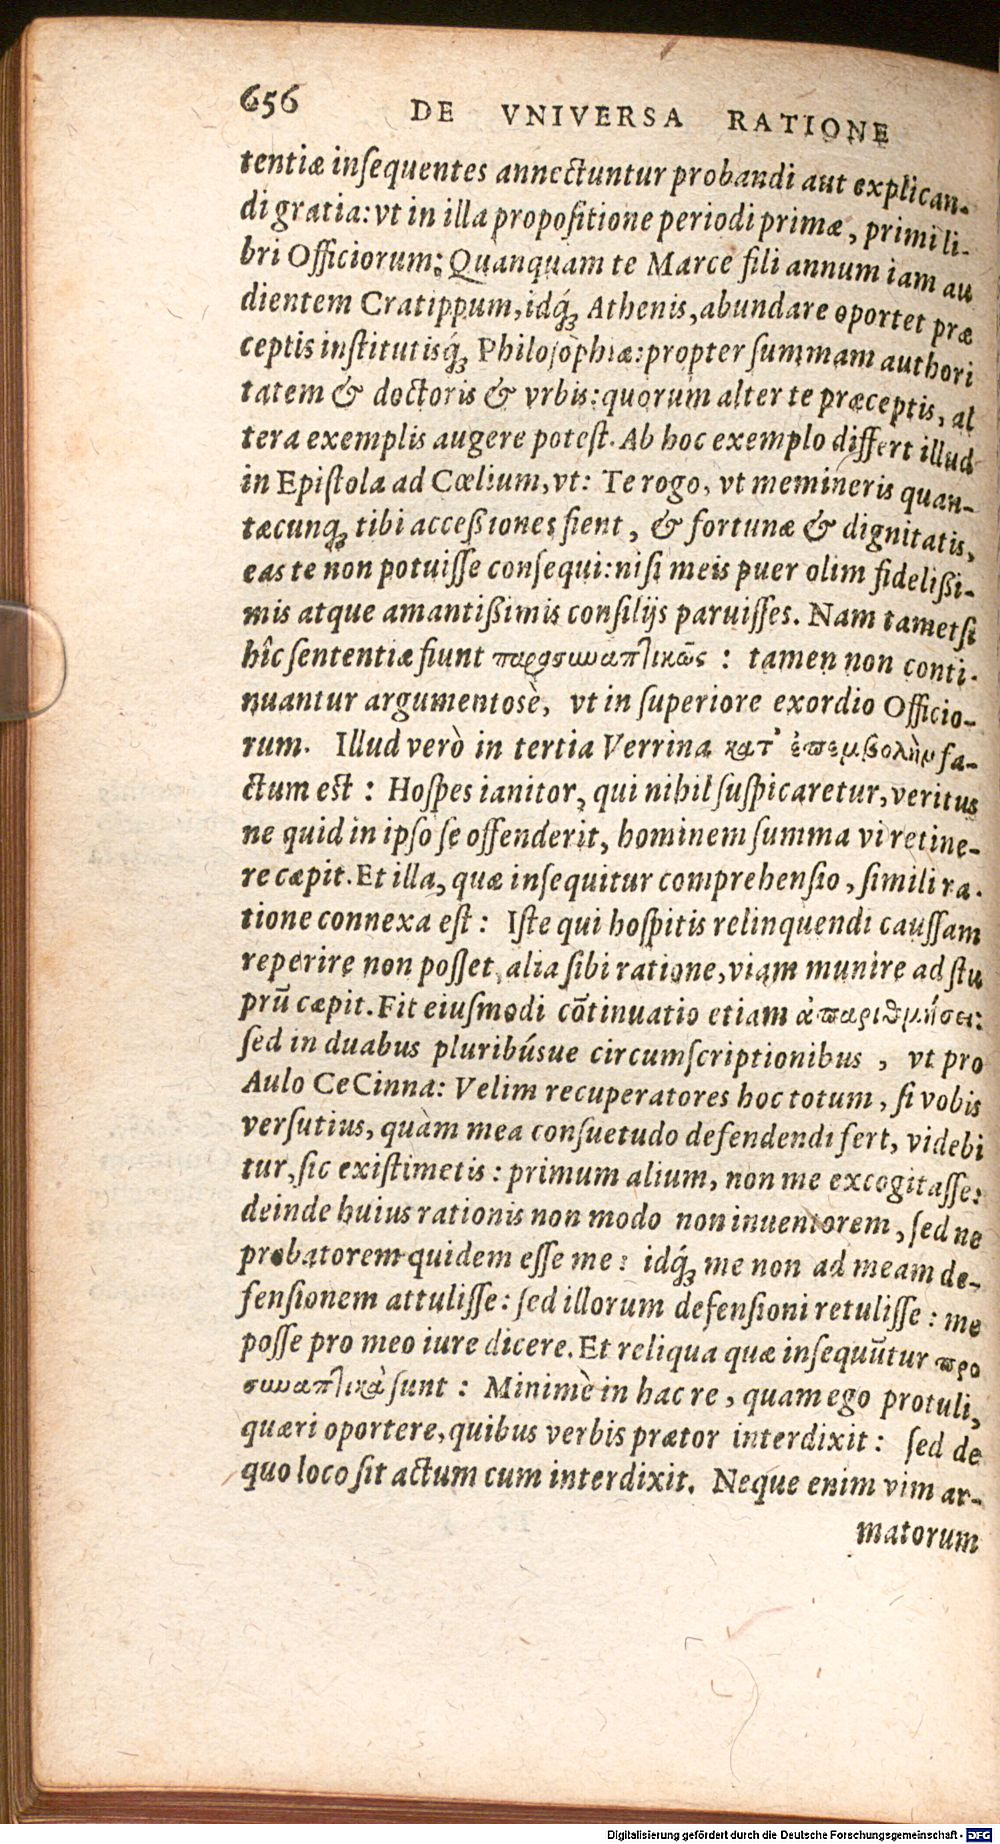 656 DE VNIVERSA RATIONE
tentiæ inſequentes annectuntur probandi aut explican-
di gratia: vt in illa propoſitione periodi primæ, primi li-
bri Officiorum: Quanquam te Marce fili annum iam au
dientem Cratippum, idq́ꝫ Athenis, abundare oportet præ
ceptis inſtitutisq́ꝫ Philoſophiæ: propter ſummam authori
tatem & doctoris & vrbis: quorum alter te præceptis, al
tera exemplis augere poteſt. Ab hoc exemplo differt illud
in Epiſtola ad Cœlium, vt: Te rogo, vt memineris quan-
tæcunqꝫ tibi acceßiones fient, & fortunæ & dignitatis,
eas te non potuiſſe conſequi: niſi meis puer olim fidelißi-
mis atque amantißimis conſilijs paruiſſes. Nam tametſi
hîc ſententiæ fiunt παροσυναπτικῶς: tamen non conti-
nuantur argumentosè, vt in ſuperiore exordio Officio-
rum. Illud verò in tertia Verrina κατ' ἐπεμβολὴν fa-
ctum est: Hoſpes ianitor, qui nihil ſuſpicaretur, veritus
ne quid in ipſo ſe offenderit, hominem ſumma vi retine-
re cæpit. Et illa, quæ inſequitur comprehenſio, ſimili ra-
tione connexa eſt: Iſte qui hoſpitis relinquendi cauſſam
reperire non poſſet, alia ſibi ratione, viam munire ad ſtu
prũ cæpit. Fit eiuſmodi cõtinuatio etiam ἀπαριθμήσει:
ſed in duabus pluribúsue circumſcriptionibus, vt pro
Aulo CeCinna: Velim recuperatores hoc totum, ſi vobis
verſutius, quàm mea conſuetudo defendendi fert, videbi
tur, ſic exiſtimetis: primum alium, non me excogitaſſe:
deinde huius rationis non modo non inuentorem, ſed ne
probatorem quidem eſſe me: idq́ꝫ me non ad meam de-
fenſionem attuliſſe: ſed illorum defenſioni retuliſſe: me
poſſe pro meo iure dicere. Et reliqua quæ inſequũtur προ
συναπτικὰ ſunt: Minimè in hac re, quam ego protuli,
quæri oportere, quibus verbis prætor interdixit: ſed de
quo loco ſit actum cum interdixit. Neque enim vim ar-
matorum
Digitalisierung gefördert durch die Deutsche Forschungsgemeinschaft - DFG